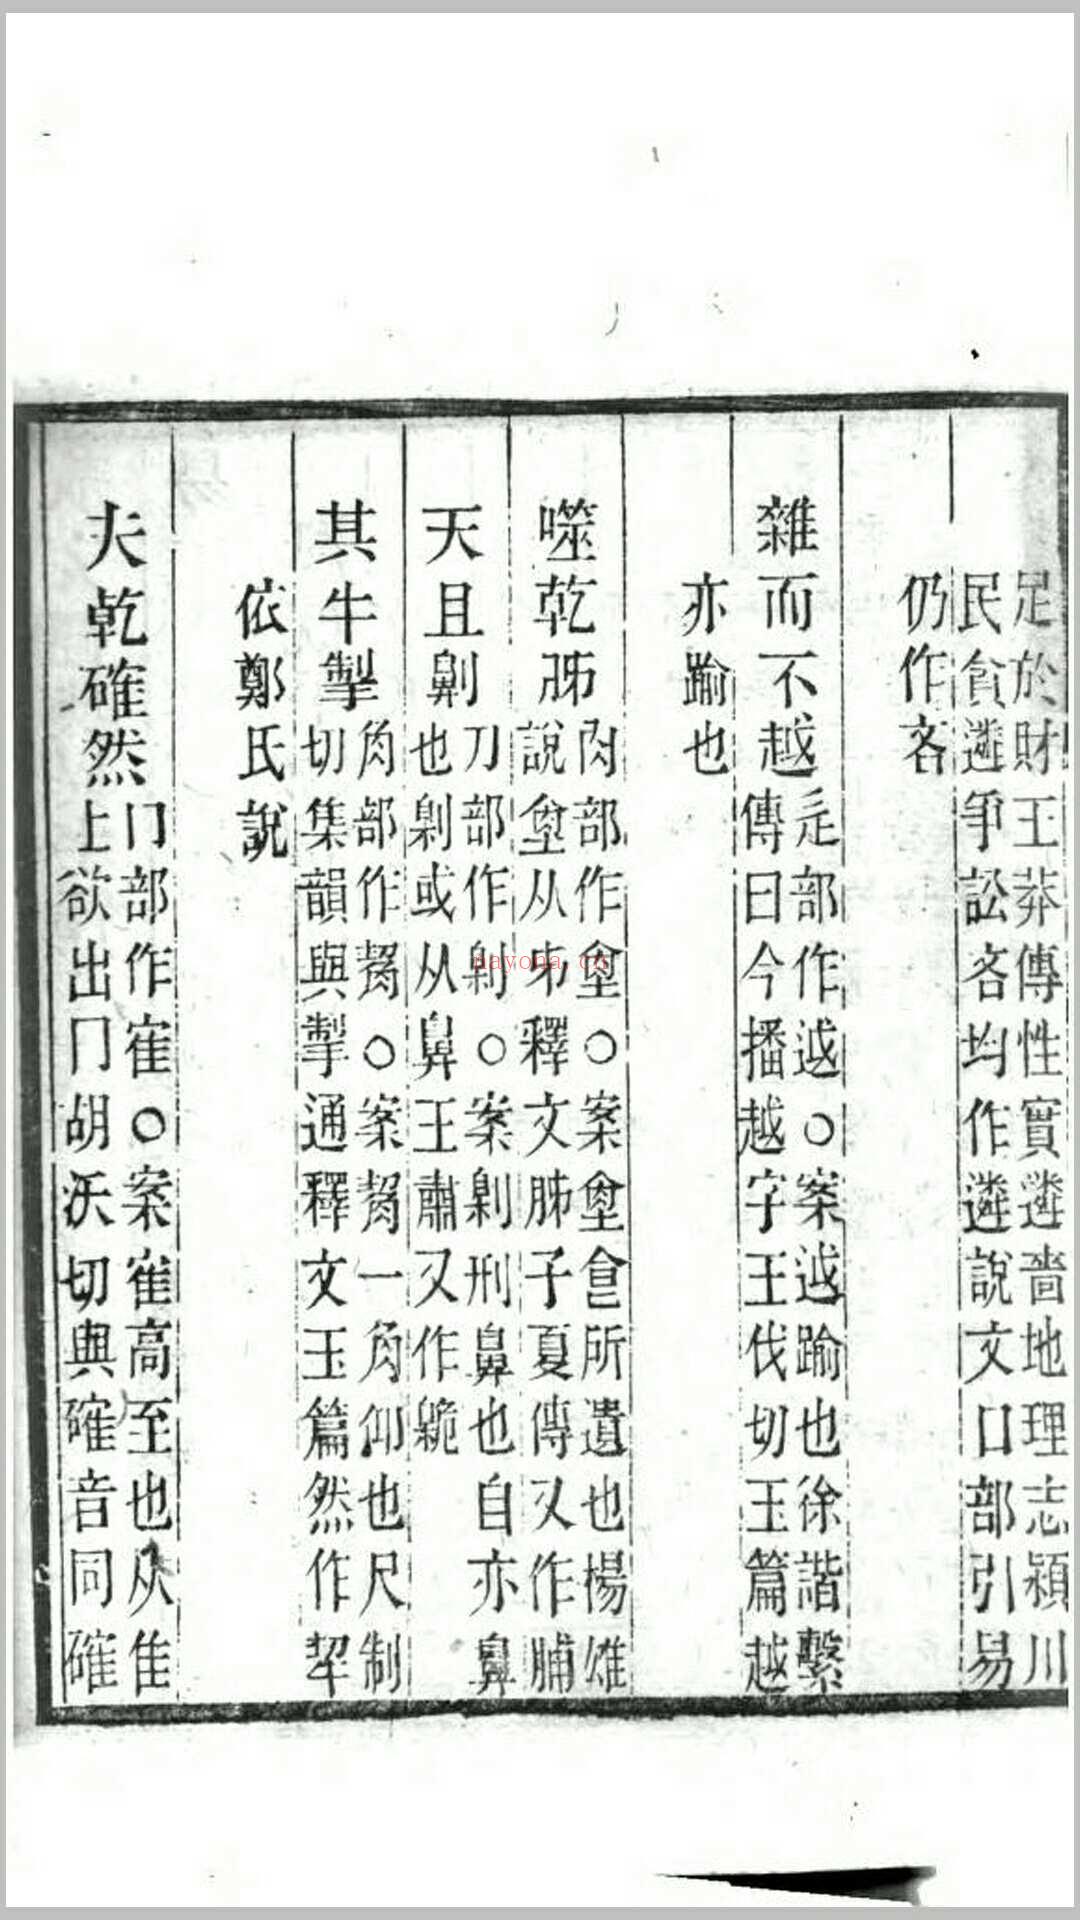 足於財王莽傳性實遴嗇地理志潁川
民貪遴爭訟吝均作遴說文口部引易
仍作吝
雜而不越
辵部作䟠○案䟠踰也徐諧繫
傳曰今播越字王伐切玉篇越
亦踰也
噬乾胏
肉部作㙻○案㙻食所遺也楊雄
說㙻从𠂔釋文胏子夏傳又作脯
天且劓
刀部作劓○案劓刑鼻也自亦鼻
也劓或从鼻王肅又作
其牛掣
角部作觢○案觢一角仰也尺制
切集韻與掣通釋文玉篇然作挈
依鄭氏說
夫乾確然
冂部作隺○案隺高至也从隹
上欲出冂胡沃切與確音同確
nayona.cn